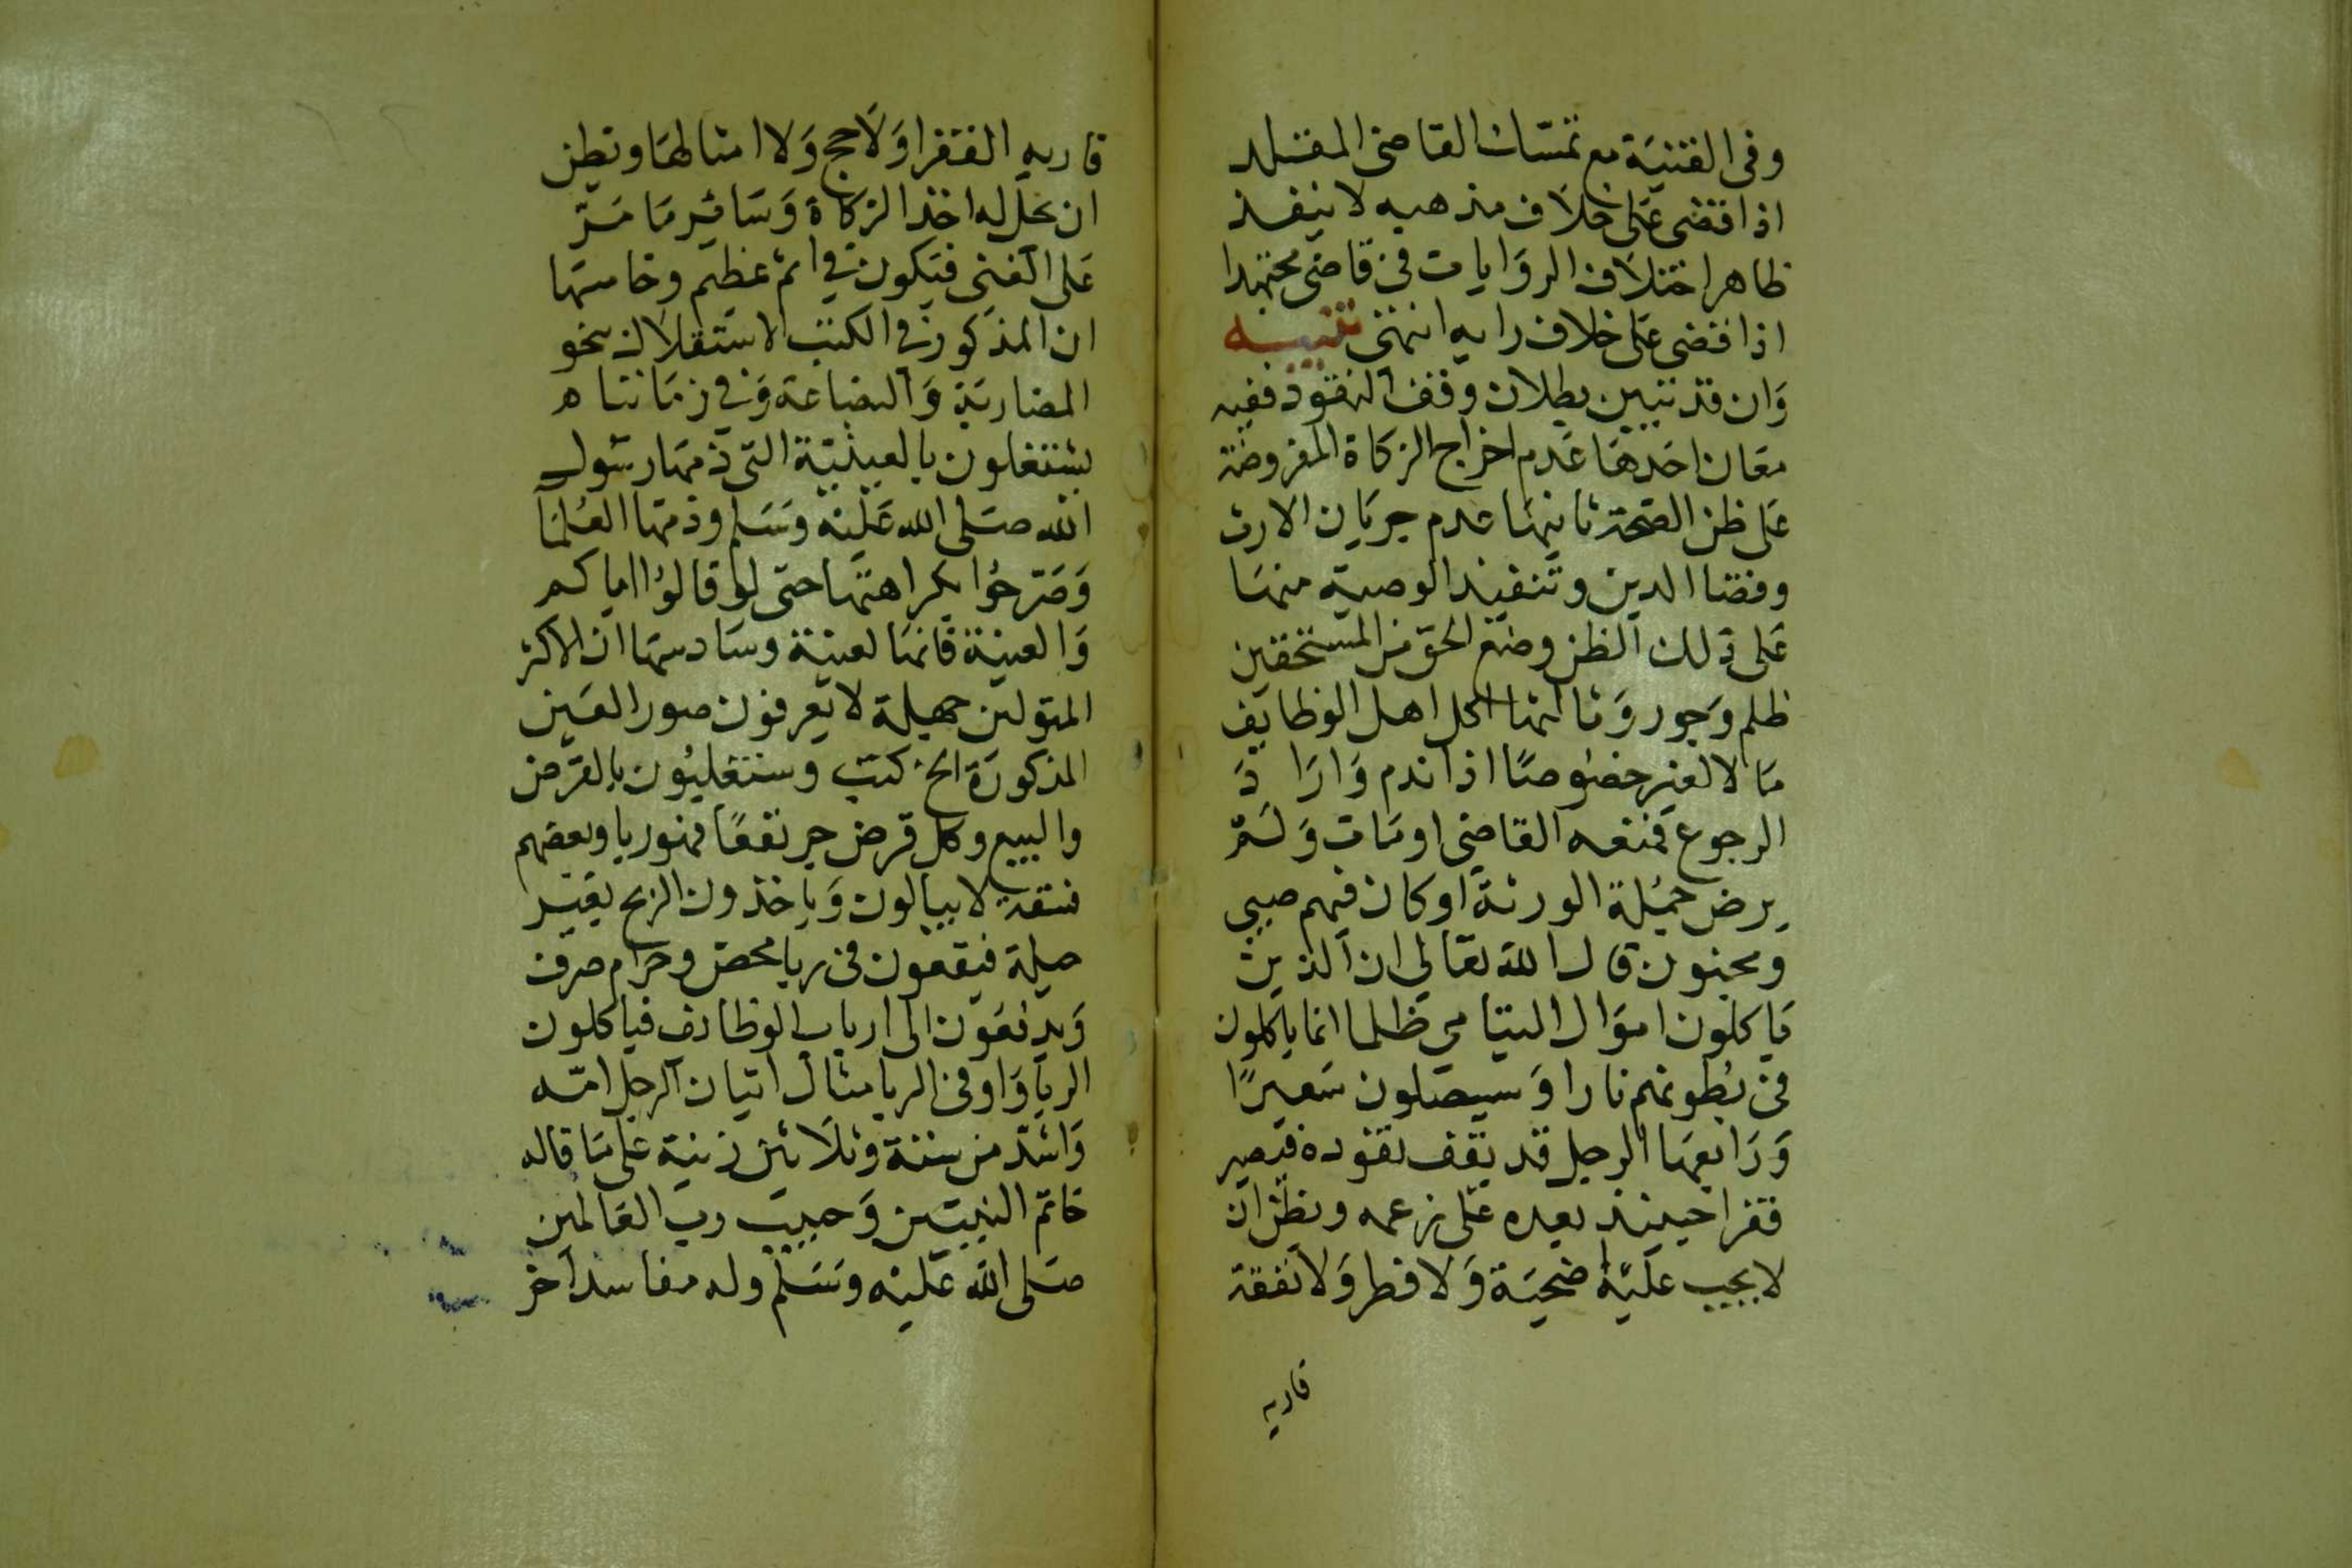 وفى القنية مع تمسك القاضى المقلد
اذا قضى على خلاف مذهبه لا ينفذ
ظاهر اختلاف الروايات فى قاضى مجتهدا
اذا قضى على خلاف رايه انتهى تنبيه
وان قد تبين بطلان وقف النقود ففيه
معان احدها عدم اخراج الزكاة المفروضة
على ظن الصحة ثانيها عدم جريان الارث
وقضا الدين وتنفيذ الوصية منها
على ذلك الظن ومنع الحق من المستحقين
ظلم وجور وثالثها اكل اهل الوظايف
مالا لغير خصوصا اذا ندم واراد
الرجوع فمنعه القاضى او مات ولم
يرض جملة الورثة او كان فيهم صبى
ومجنون قال الله تعالى ان الذين
ياكلون اموال اليتامى ظلما انما ياكلون
فى بطونهم نارا وسيصلون سعيرًا
ورابعها الرجل قد يقف نقوده فيصير
فقرا حينئذ بعده على زعمه ويظن ان
لا يجب عليه ضحية ولا فطر ولا نفقة
قاربه
قاربه الفقرا ولا حج ولا امثالها ويظن
ان يحل له اخذ الزكاة وساير ما مر
على الغنى فيكون فى اثم عظيم وخامسها
ان المذكور فى الكتب الاستقلال نحو
المضاربة والبضاعة وفى زماننا ه
يشتغلون بالعينية التى ذمها رسول
الله صلى الله عليه وسلم وذمها العلما
وصرحوا بكراهتها حتى لو قالوا اياكم
والعينة فانها لعينة وسادسها ان الاكثر
المتولين جهلة لا يعرفون صور العين
المذكورة الخ كتب وستغليون بالقرض
والبيع وكل قرض جر نفعًا فهو ربا وبعضهم
فسقة لا يبالون وياخذون الربح بغير
حيلة فيقعون فى ربا محض وحرام صرف
ويدفعون الى ارباب الوظايف فياكلون
الربا واوفى الربا مثال اتيان الرجل امه
واشد من ستة وثلاثين زنية على ما قاله
خاتم النبيين وحبيب رب العالمين
صلى الله عليه وسلم وله مفاسد اخر